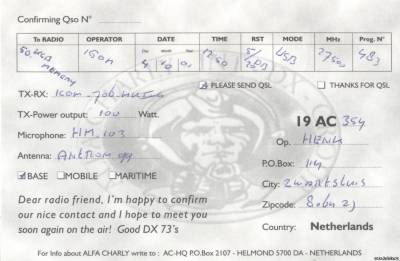 Confirming Qso N°
To RADIO OPERATOR DATE TIME RST MODE MHz Prog. N°
Day Month Year
IGOR USB 483
☑ PLEASE SEND QSL ☐ THANKS FOR QSL
TX-RX: Icom
TX-Power output: 100 Watt.
19 AC 354
Microphone: HM 103
Op. HENK
Antenna: ANTRON 99
P.O.Box: 114
☑ BASE ☐ MOBILE ☐ MARITIME
City: Zwartsluis
Dear radio friend, I'm happy to confirm
our nice contact and I hope to meet you
soon again on the air! Good DX 73's
Zipcode:
Country: Netherlands
For Info about ALFA CHARLY write to : AC-HQ P.O.Box 2107 - HELMOND 5700 DA - NETHERLANDS